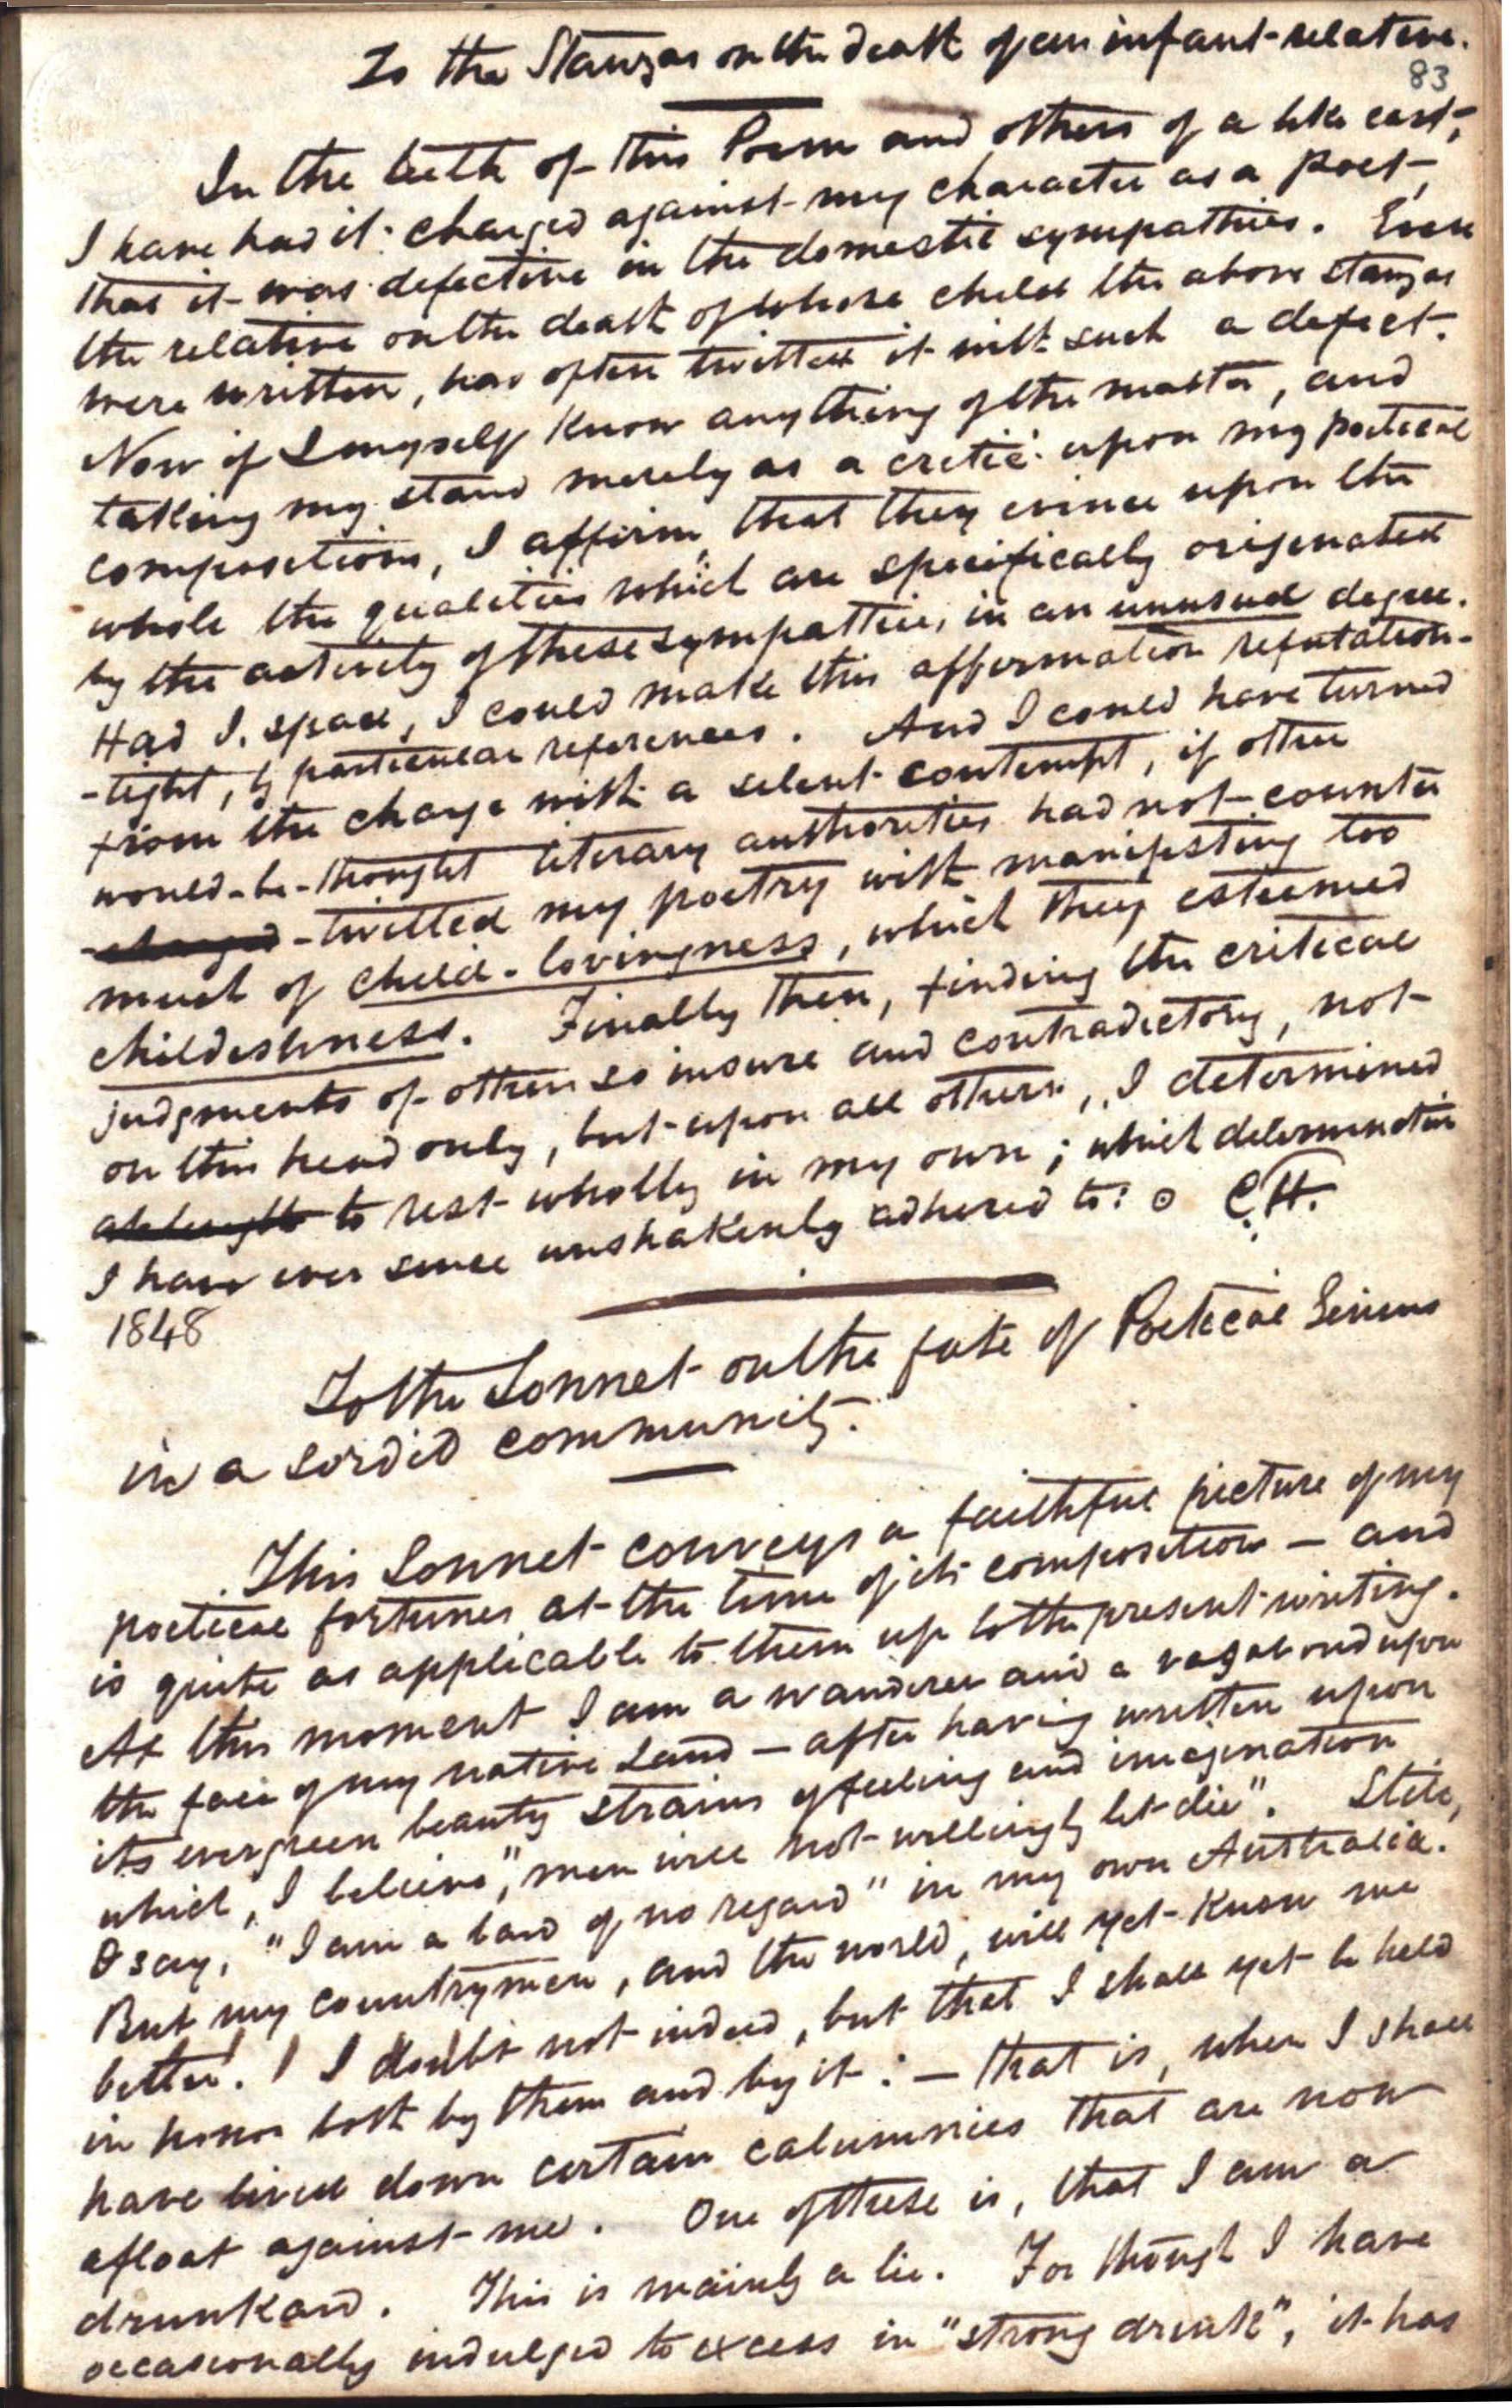 To the Stanzas on the death of an infant-relative.
83
In the teeth of this Poem and others of a like cast,
I have had it charged against my character as a poet,
that it was defective in the domestic sympathies. Even
the relative on the death of whose child the above stanzas
were written, has often twitted it with such a defect.
Now if I myself know anything of the matter, and
taking my stand merely as a critic upon my poetical
compositions, I affirm, that they evince upon the
whole the qualities which are specifically originated
by the activity of these sympathies, in an unusual degree.
Had I space, I could make this affirmation refutation-
-tight, by particular references. And I could have turned
from the charge with a silent contempt, if other
would-be-thought literary authorities had not counter
-charged -twitted my poetry with manifesting too
much of child-lovingness, which they esteemed
childishness. Finally then, finding the critical
judgments of others so insure and contradictory, not
on this head only, but upon all others, I determined
to rest wholly in my own; which determination
I have ever since unshakenly adhered to: C.H.
1848
To the Sonnet on the fate of Poetical Genius
in a sordid community.
This Sonnet conveys a faithful picture of my
poetical fortunes at the time of its composition — and
is quite as applicable to them up to the present writing.
At this moment I am a wanderer and a vagabond upon
the face of my native Land — after having written upon
its evergreen beauty strains of feeling and imagination
which, I believe, "men will not willingly let die". Still,
I say, "I am a bard of no regard" in my own Australia.
But my countrymen, and the world, will yet know me
better! I doubt not indeed, but that I shall yet be held
in honor both by them and by it: — that is, when I shall
have lived down certain calumnies that are now
afloat against me. One of these is, that I am a
drunkard. This is mainly a lie. For though I have
occasionally indulged to excess in "strong drink", it has